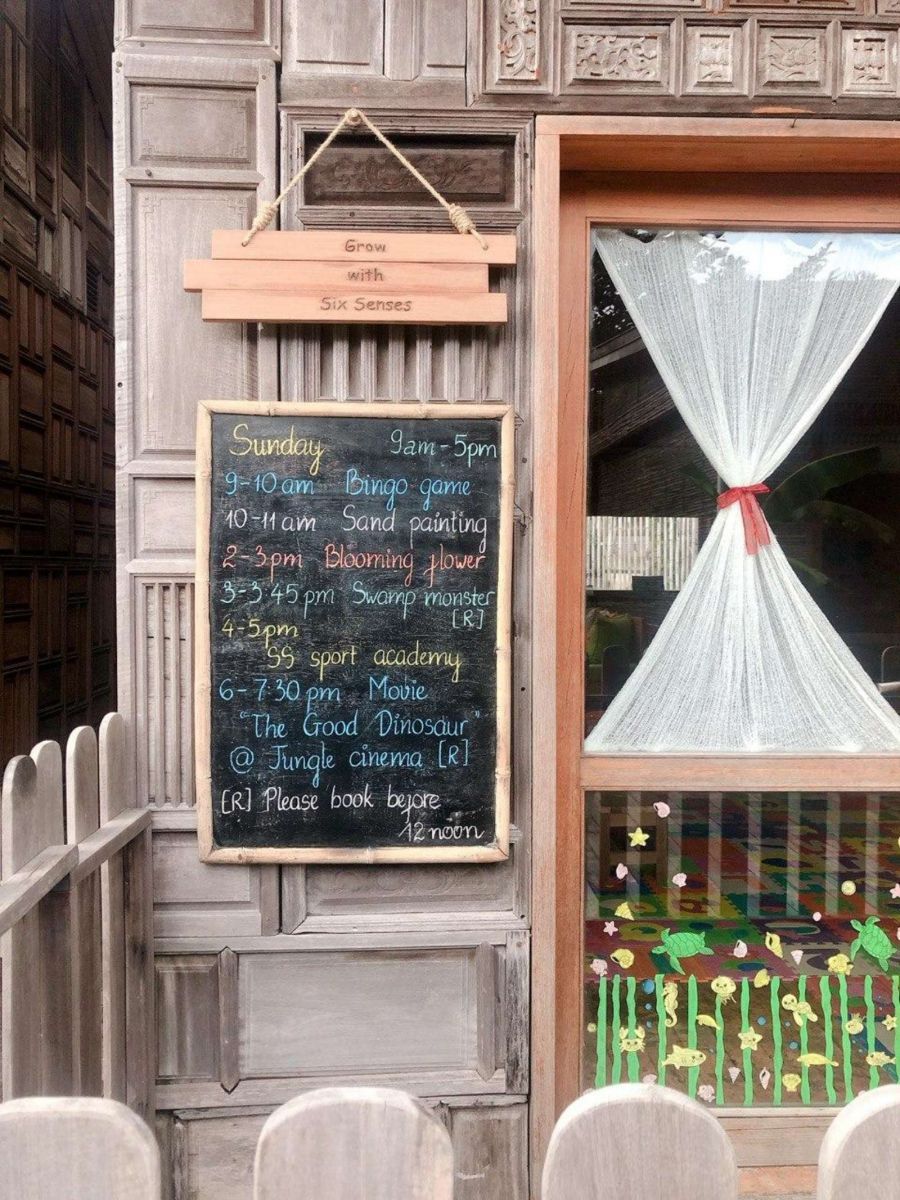 Grow
with
Six Senses
Sunday 9am-5pm
9-10am Bingo game
10-11am Sand painting
2-3pm Blooming flower
3-3:45pm Swamp monster
[R]
4-5pm
SS sport academy
6-7:30pm Movie
"The Good Dinosaur"
@ Jungle cinema [R]
[R] Please book before
12 noon